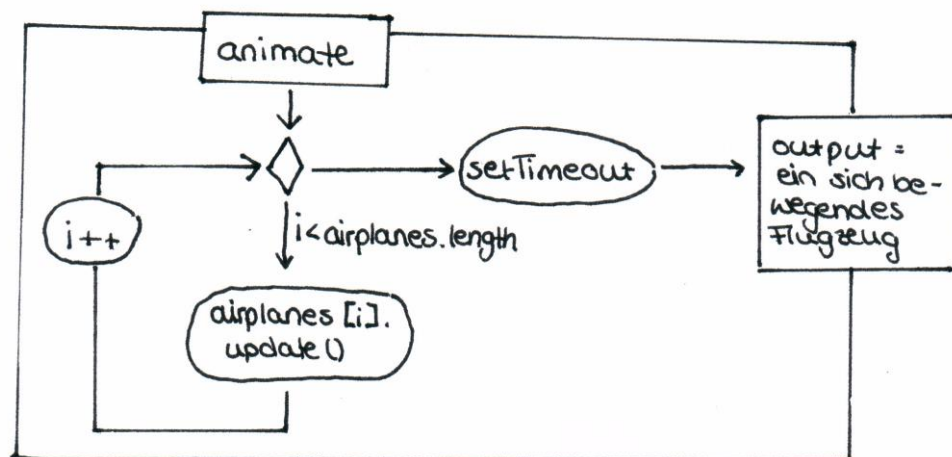 animate
setTimeout
output =
ein sich be-
wegendes
Flugzeug
i++
i<airplanes.length
airplanes [i].
update()